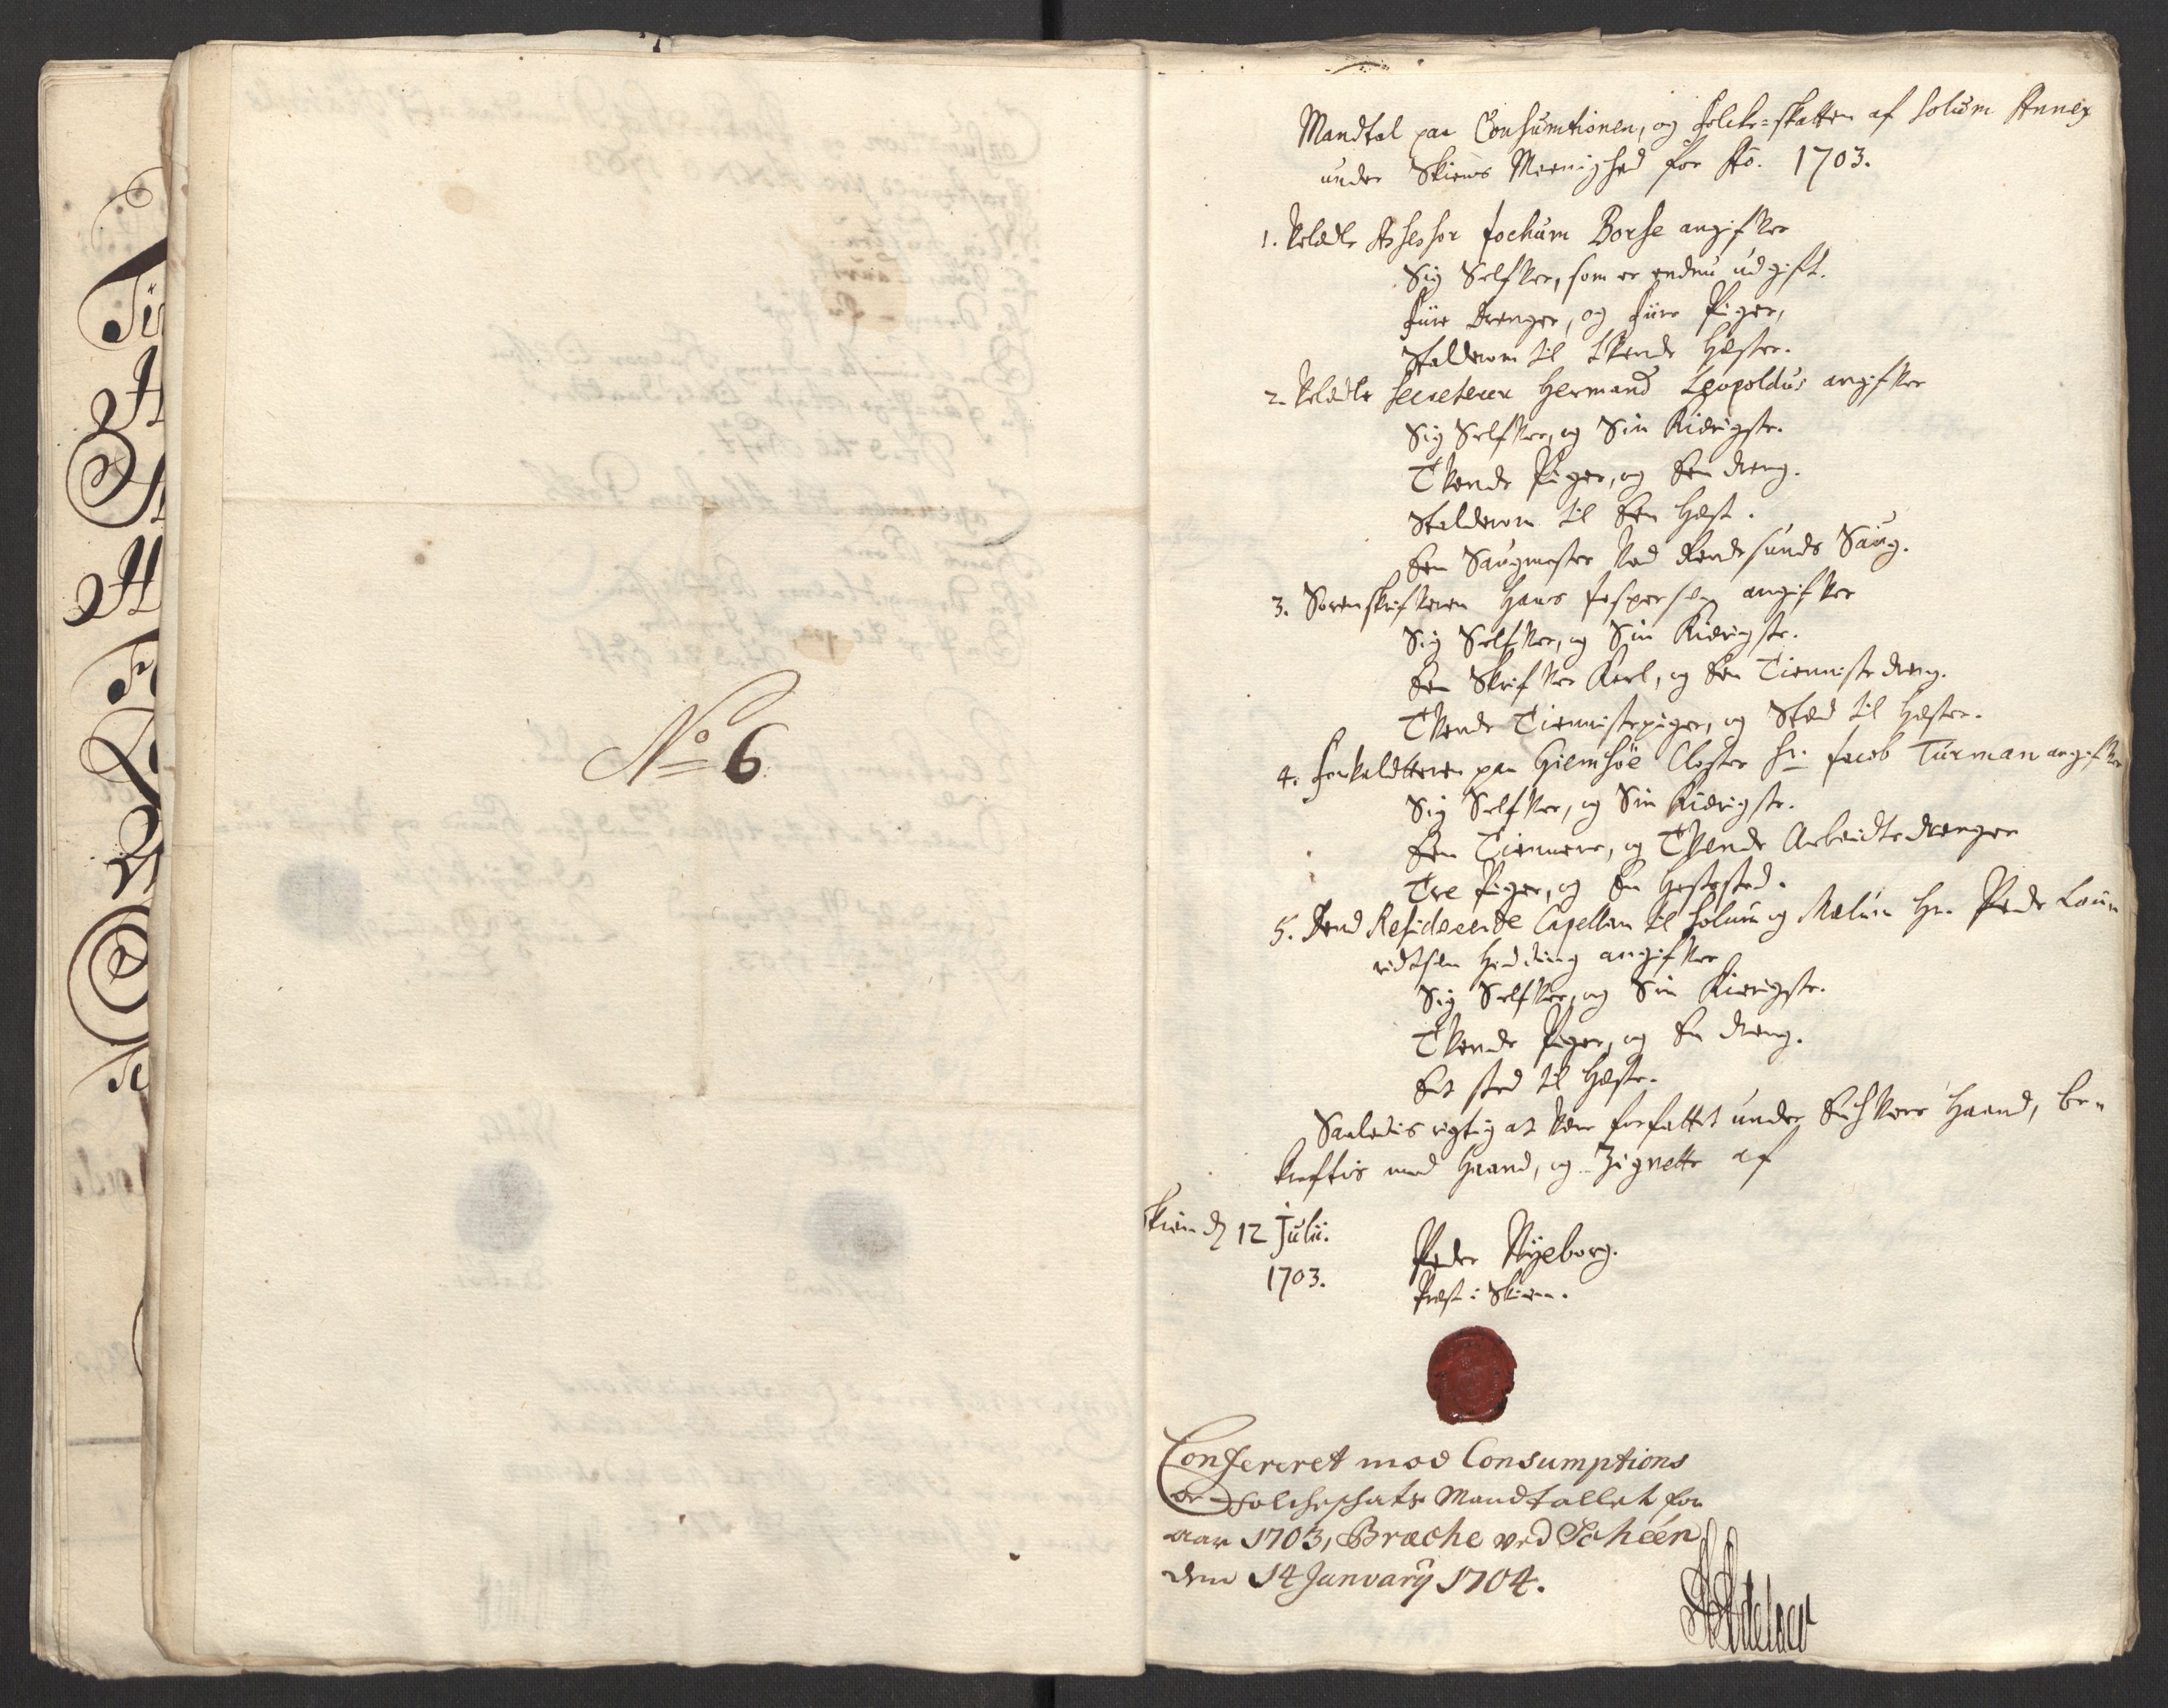 No 6
Mandtal paa Consumtionen, og Folche-skatten af Solum Annex
under Skiens Meenighed for Ao. 1703.
1. Velædle Assessor Jochum Borse angifver
Sig Selfver, som er endnu udgift.
Fiire Drenge, og Fiire Piger,
Stalderom til Tvende Hæster.
2. Velædle Secreterer Hermand Leopoldus angifver
Sig Selfver, og Sin Kiæriste.
Tvende Piger, og Een dreng.
Stalderom til Een Hæst.
Een Saugmester ved Sunds Saug.
3. Sorenskrifveren Hans Jespersen angifver
Sig Selfver, og Sin Kiæriste.
Een Skrifver Karl, og Een Tienniste dreng.
Tvende Tiennistepiger, og Stæd til Hæster.
4. Forvaltteren paa Giemsöe Closter Sr. Jacob Turman angifver
Sig Selfver, og Sin Kiæriste.
Een Tiennere, og Tvende Arbeidtsdrenger
Tre Piger, og En Hestested.
5. Dend Residerende Capellan til Solum og Mælum Hr. Peder Lau-
ridtsen Hedding angifver
Sig Selfver, og Sin Kiæriste.
Tvende Piger, og En dreng.
Et sted til Hæste.
Saaledis rigtig at være forfattet under Enhvers Haand, be-
kreftis med Haand, og Zignette af
Skien d 12 Julii.
1703.
Peder Nyeborg.
Præst i Skien.
Confereret mod Consumptions
oc Folcheschats Mandtallet for
aar 1703, Bratche ved Schéen
dend 14 January 1704.